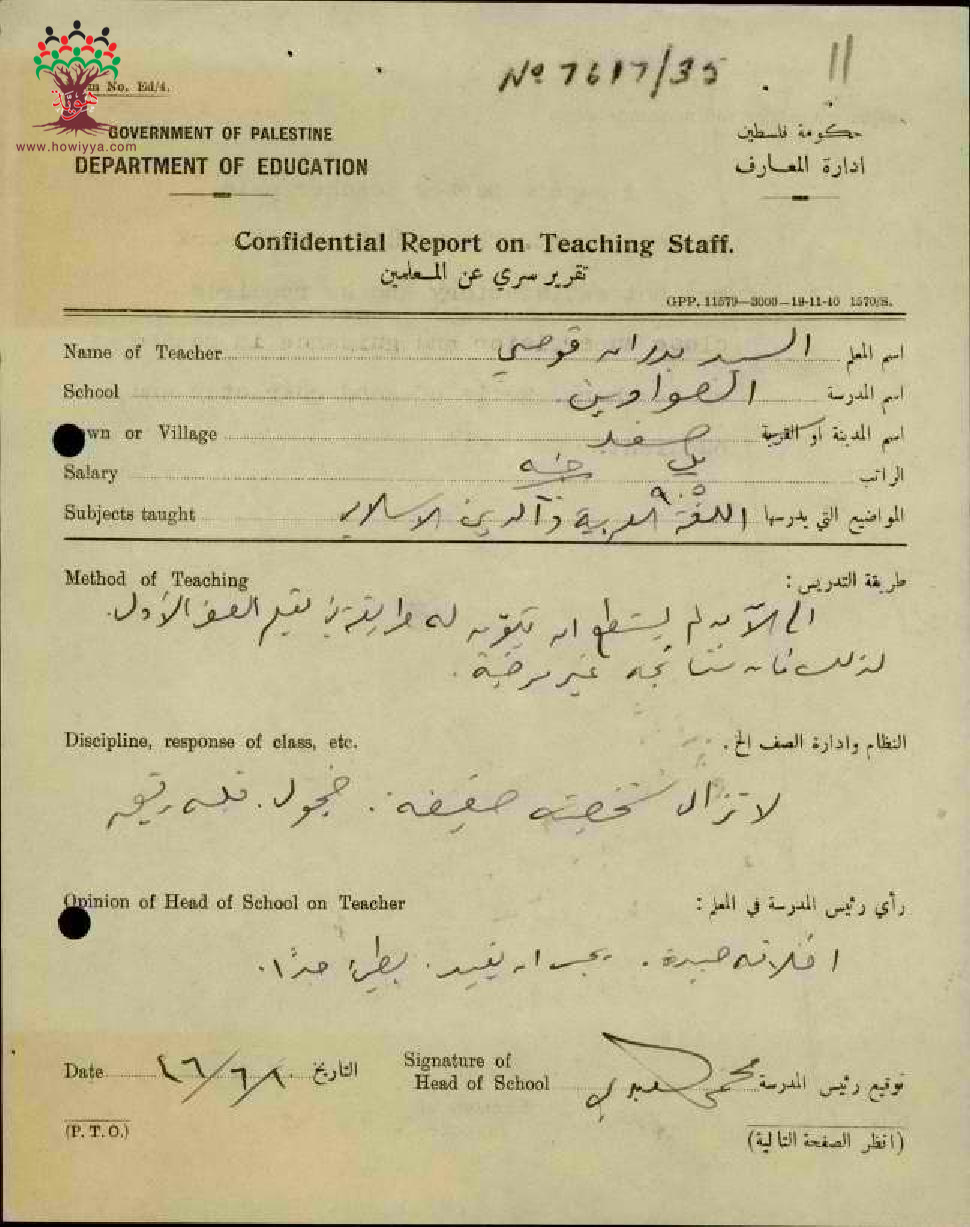 No 7617/35
11
No. Ed/4.
GOVERNMENT OF PALESTINE
حكومة فلسطين
www.howiyya.com
DEPARTMENT OF EDUCATION
ادارة المعارف
Confidential Report on Teaching Staff.
تقرير سري عن المعلمين
GPP. 11579—3000—19-11-40 1570/S.
Name of Teacher السيد بدران قوصي اسم المعلم
School الصواوين اسم المدرسة
Town or Village صفد اسم المدينة أو القرية
Salary الراتب
Subjects taught اللغة العربية والدين الاسلامي المواضيع التي يدرسها
Method of Teaching طريقة التدريس :
الى الآن لم يستطع ان تكون له طريقة في تعليم الصف الأول.
لذلك فان نتائجه غير مرضية.
Discipline, response of class, etc. النظام وادارة الصف الخ.
لا تزال شخصيته ضعيفة. خجول. قلبه رقيق
Opinion of Head of School on Teacher رأي رئيس المدرسة في المعلم :
اخلاقه جيدة. يحب ان يفيد. بطيء جدًا.
Date التاريخ
Signature of
Head of School توقيع رئيس المدرسة
(P. T. O.)
(انظر الصفحة التالية)